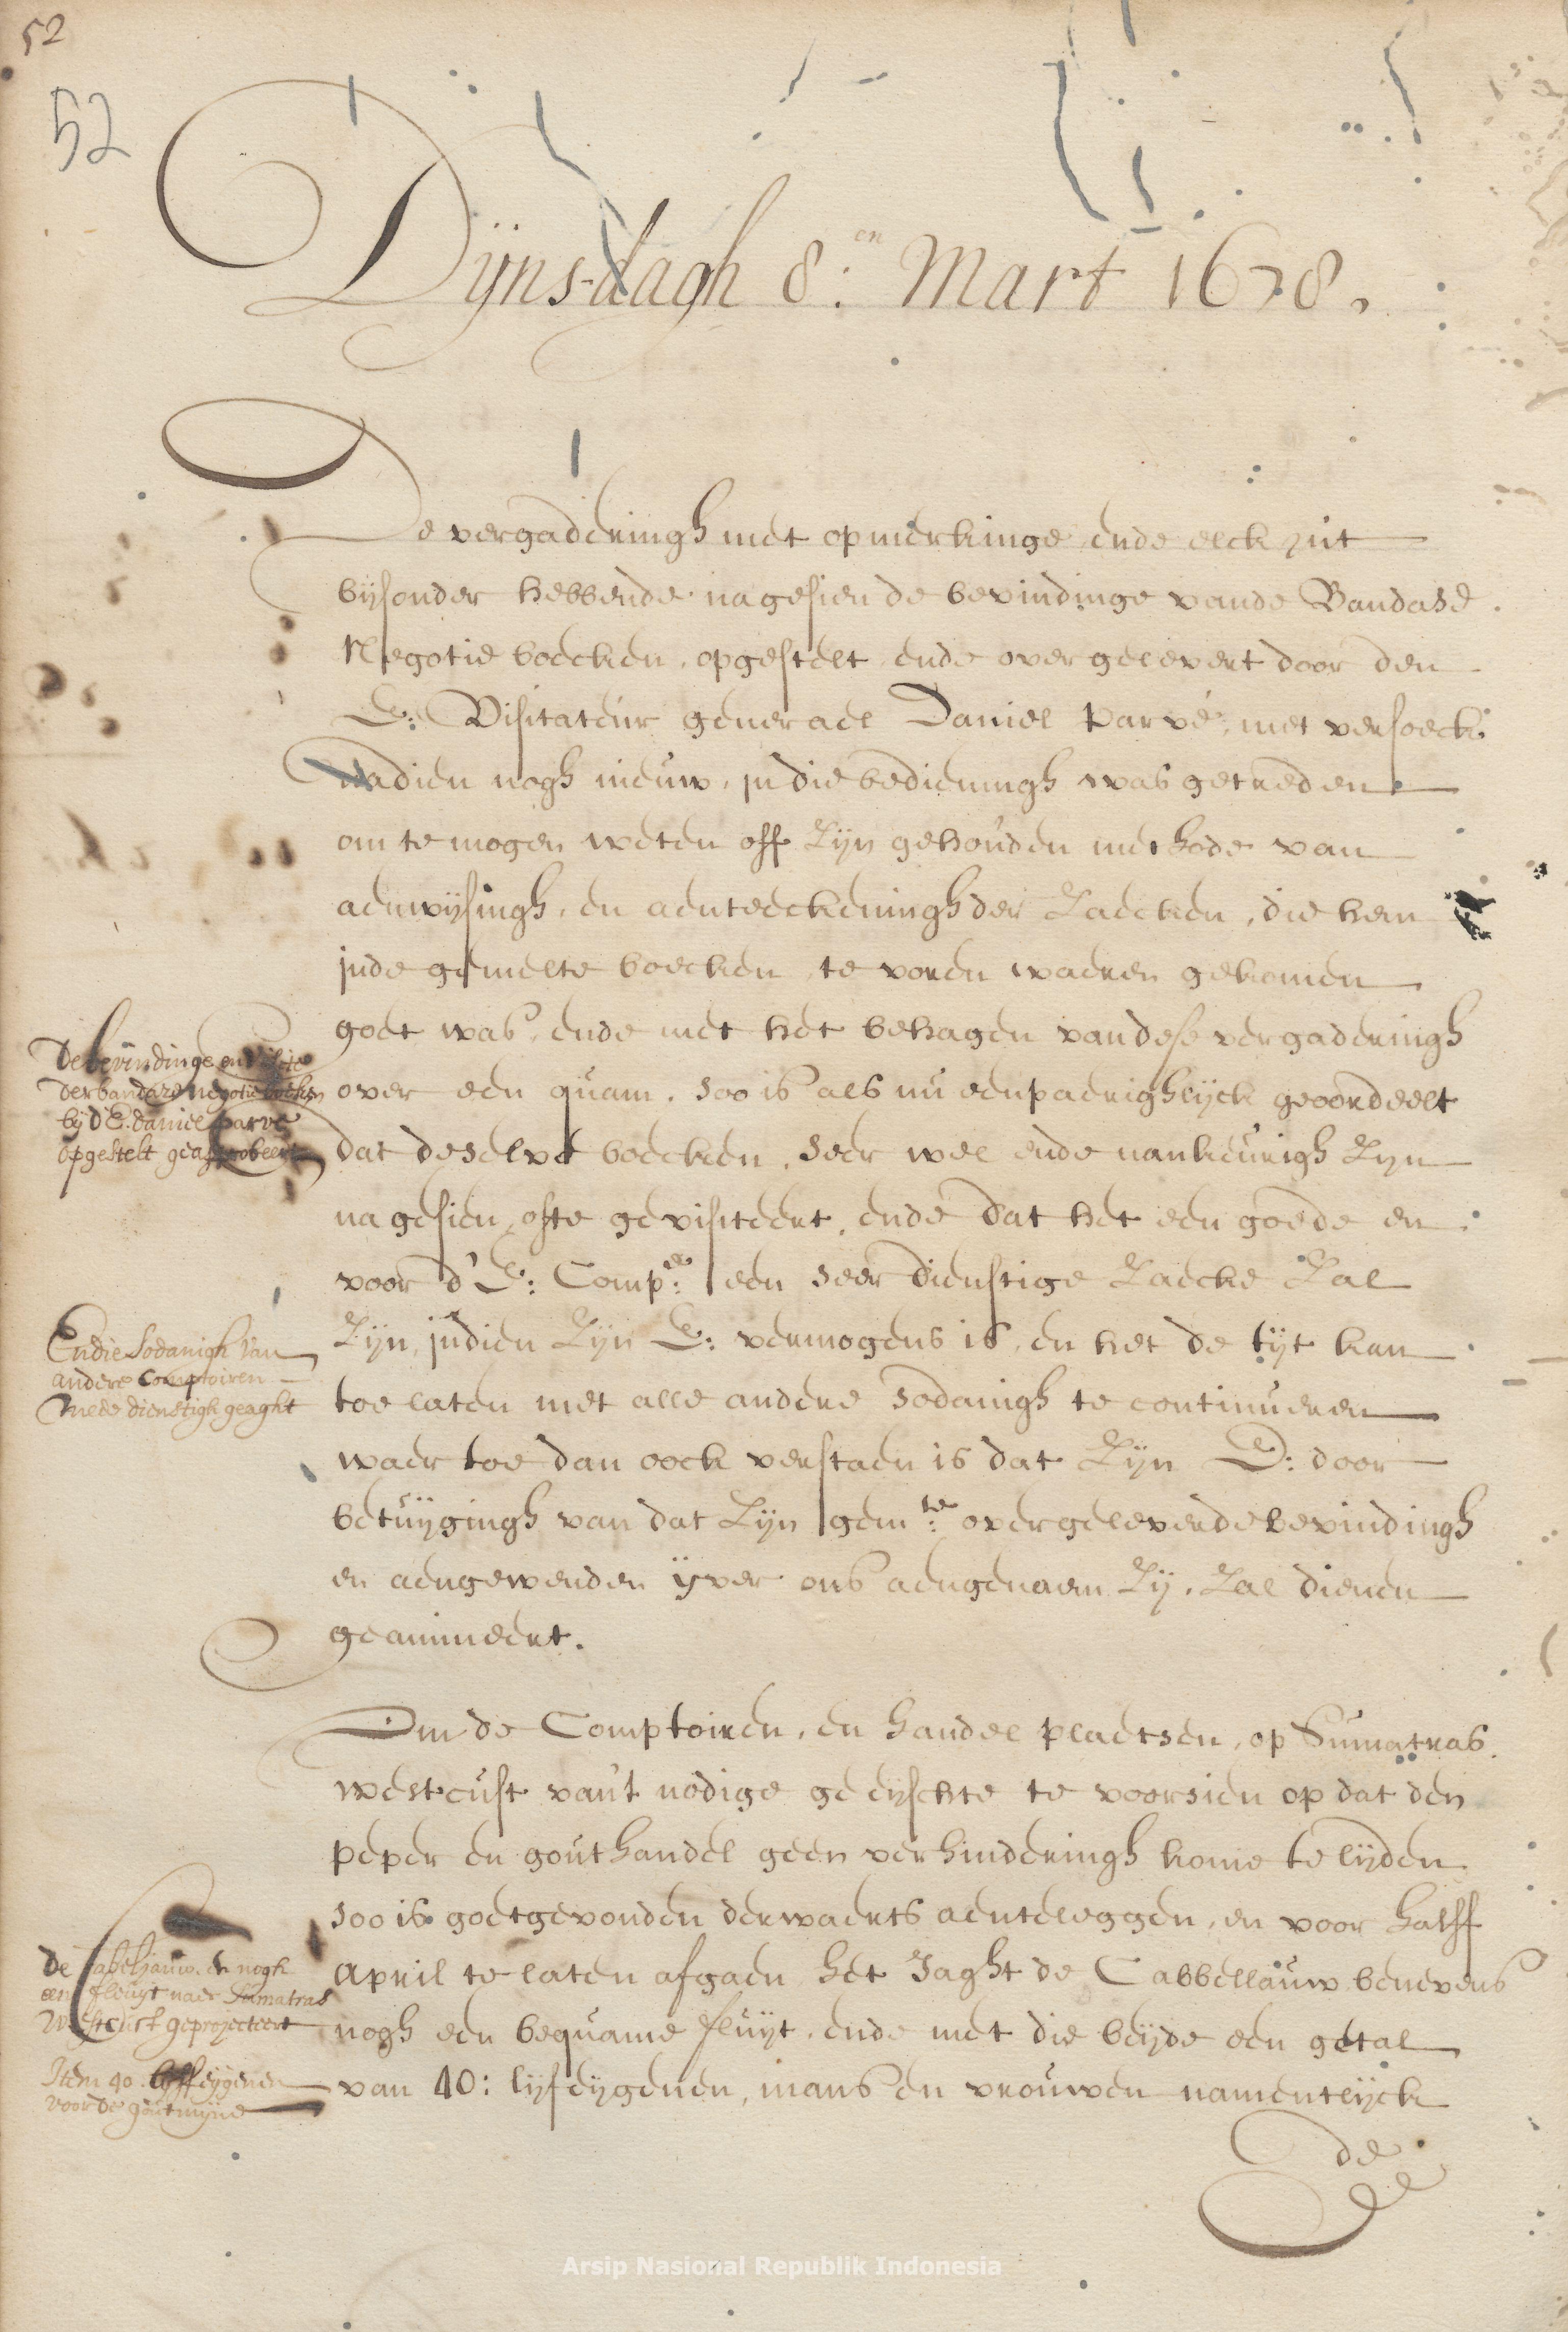 52
52
Dÿns-dagh 8:en Mart 1678.
De vergaderingh met opmerkinge ende elck int
bÿsonder hebbende nagesien de bevindinge vande Bandase
Negotie boecken, opgestelt ende overgelevert door den
E: Visitateur generael Daniel Parvé, met versoeck
nadien nogh nieuw, in die bedieningh was getreden
om te mogen weten off zÿn gehouden methode van
aenwÿsingh, en aenteeckeningh der zaecken, die hem
inde gemelte boecken te voren waeren gekomen
goet was, ende met het behagen van dese vergaderingh
over een quam, soo is als nu eenpaerighlÿck geoordeelt
dat deselve boecken, seer wel ende naukeurigh zÿn
nagesien, ofte gevisiteert, ende dat het een goede en
voor d'E: Comp:e een seer dienstige zaecke zal
zÿn, indien zÿn E: vermogens is, en het de tÿt kan
toe laten met alle andere sodanigh te continueren
waer toe dan oock verstaen is dat zÿn E: door
betuÿgingh van dat zÿn gem:te overgeleverde bevindingh
en aengewenden ÿver ons aengenaem zÿ, zal dienen
geanimeert.
De bevindinge en
der bandaze negotie boeken
bÿ d'E. daniel parve
opgestelt geapprobeert
En die sodanigh van
andere Comptoiren
mede dienstigh geaght
Om de Comptoiren, en handel plaetsen, op Sumatras
westcust van't nodige geeÿschte te voorsien op dat den
peper en gout handel geen verhinderingh kome te lÿden
soo is goetgevonden derwaerts aenteleggen, en voor halff
april te laten afgaen het Jaght de Cabbellauw benevens
nogh een bequame fluÿt, ende met die beÿde een getal
van 40: lÿfeÿgenen, mans en vrouwen namentlÿck
De Cabeljauw en nogh
een fleuÿt naer Sumatras
Westcust geprojecteert
Item 40. lÿffeÿgenen
voor de goutmÿne
de
Arsip Nasional Republik Indonesia